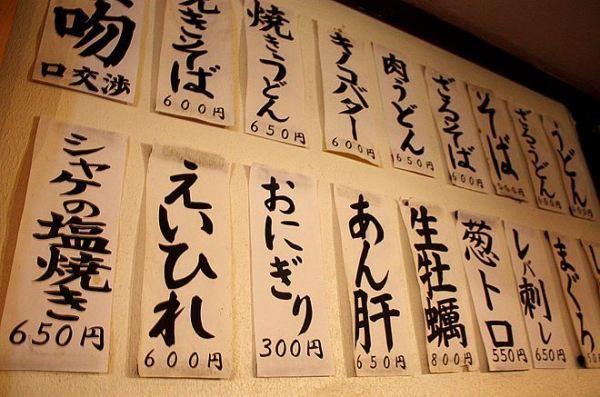 吻
口交渉
焼きそば
600円
焼きうどん
650円
キノコバター
600円
肉うどん
650円
ざるそば
600円
そば
ざるうどん
うどん
シャケの塩焼き
650円
えいひれ
600円
おにぎり
300円
あん肝
650円
生牡蠣
800円
葱トロ
550円
レバ刺し
650円
まぐろ